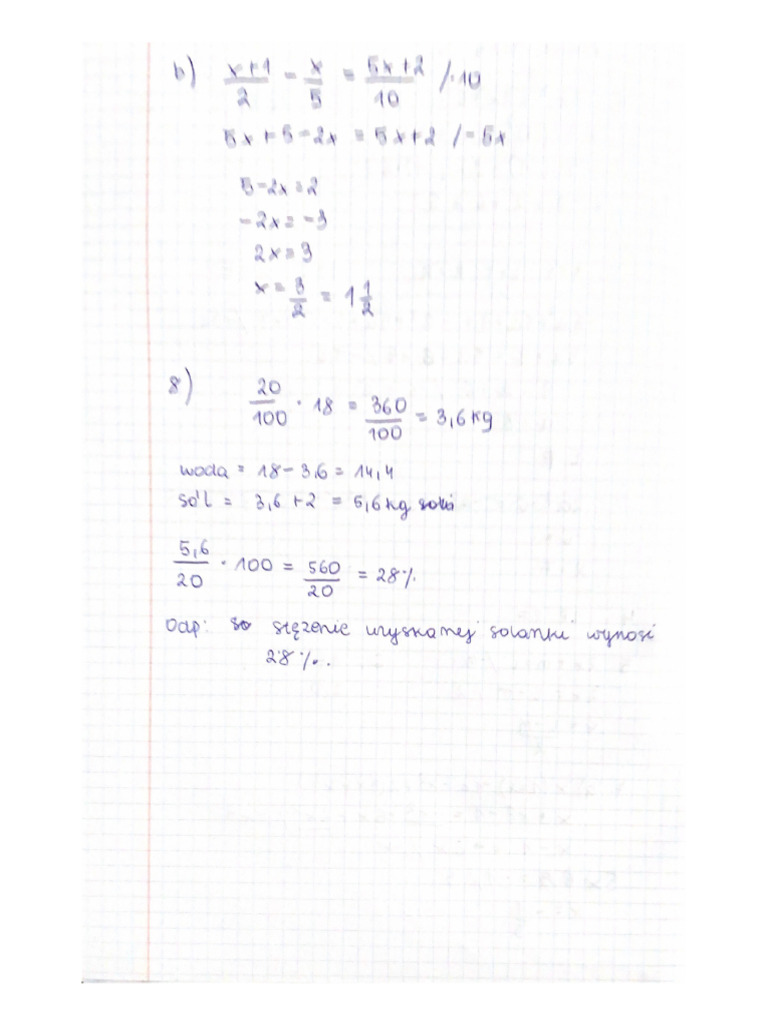 b) x+1/2 - x/5 = 5x+2/10 /·10
5x+5-2x = 5x+2 /-5x
5-2x=2
-2x=-3
2x=3
x=3/2=1 1/2
8) 20/100 · 18 = 360/100 = 3,6 kg
woda = 18-3,6 = 14,4
sól = 3,6+2 = 5,6 kg soli
5,6/20 · 100 = 560/20 = 28%
Odp: stężenie uzyskanej solanki wynosi
28%.